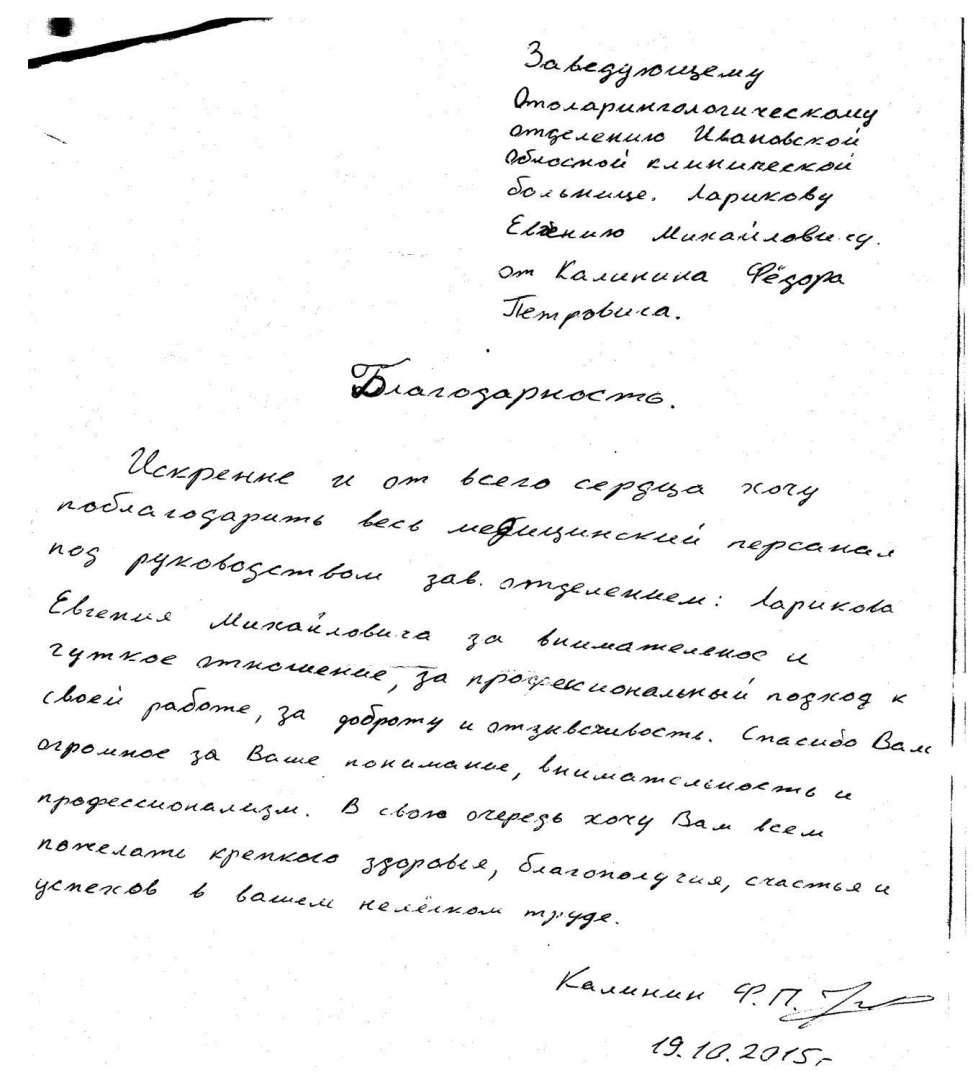 Заведующему
Отоларингологическому
отделению Ивановской
Областной клинической
больнице. Ларикову
Евгению Михайловичу.
от Калинина Фёдора
Петровича.
Благодарность.
Искренне и от всего сердца хочу
поблагодарить весь медицинский персанал
под руководством зав. отделением: Ларикова
Евгения Михайловича за внимательное и
чуткое отношение, за профессиональный подход к
своей работе, за доброту и отзывсчивость. Спасибо Вам
огромное за Ваше понимание, внимательность и
профессионализм. В свою очередь хочу Вам всем
пожелать крепкого здоровья, благополучия, счастья и
успехов в вашем нелёгком труде.
Калинин Ф.П.
19.10.2015г